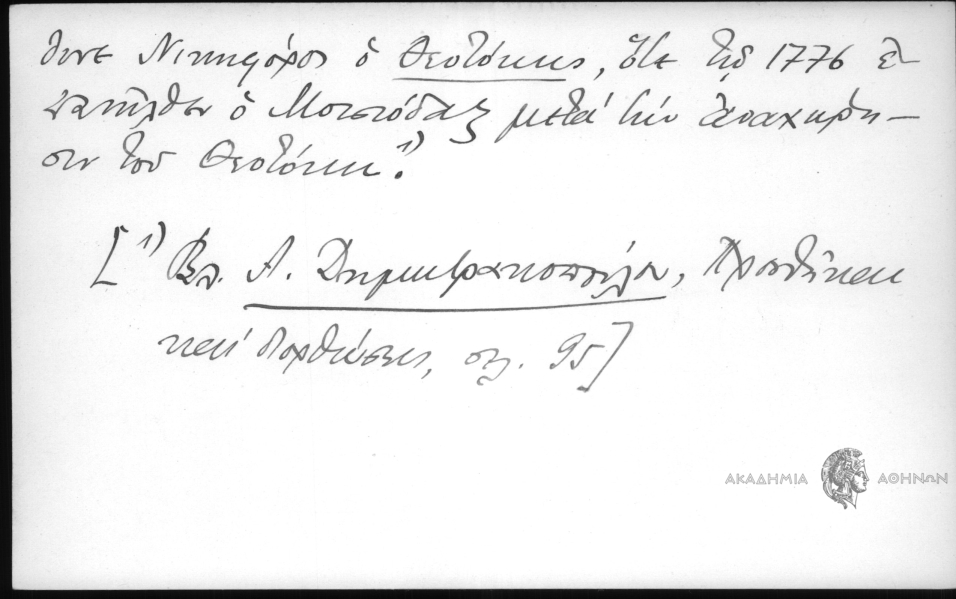 θυνε Νικηφόρος ὁ Θεοτόκης, ὅτε τῷ 1776 ἐ-
πανῆλθεν ὁ Μοισιόδαξ μετά τήν ἀναχώρη-
σιν τοῦ Θεοτόκη.¹⁾
[¹⁾ Βλ. Α. Δημητρακοπούλου, Προσθῆκαι
καί διορθώσεις, σελ. 95]
ΑΚΑΔΗΜΙΑ ΑΘΗΝΩΝ